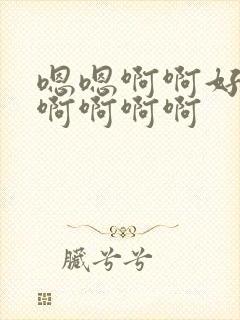 嗯嗯啊啊好
啊啊啊啊
臟兮兮